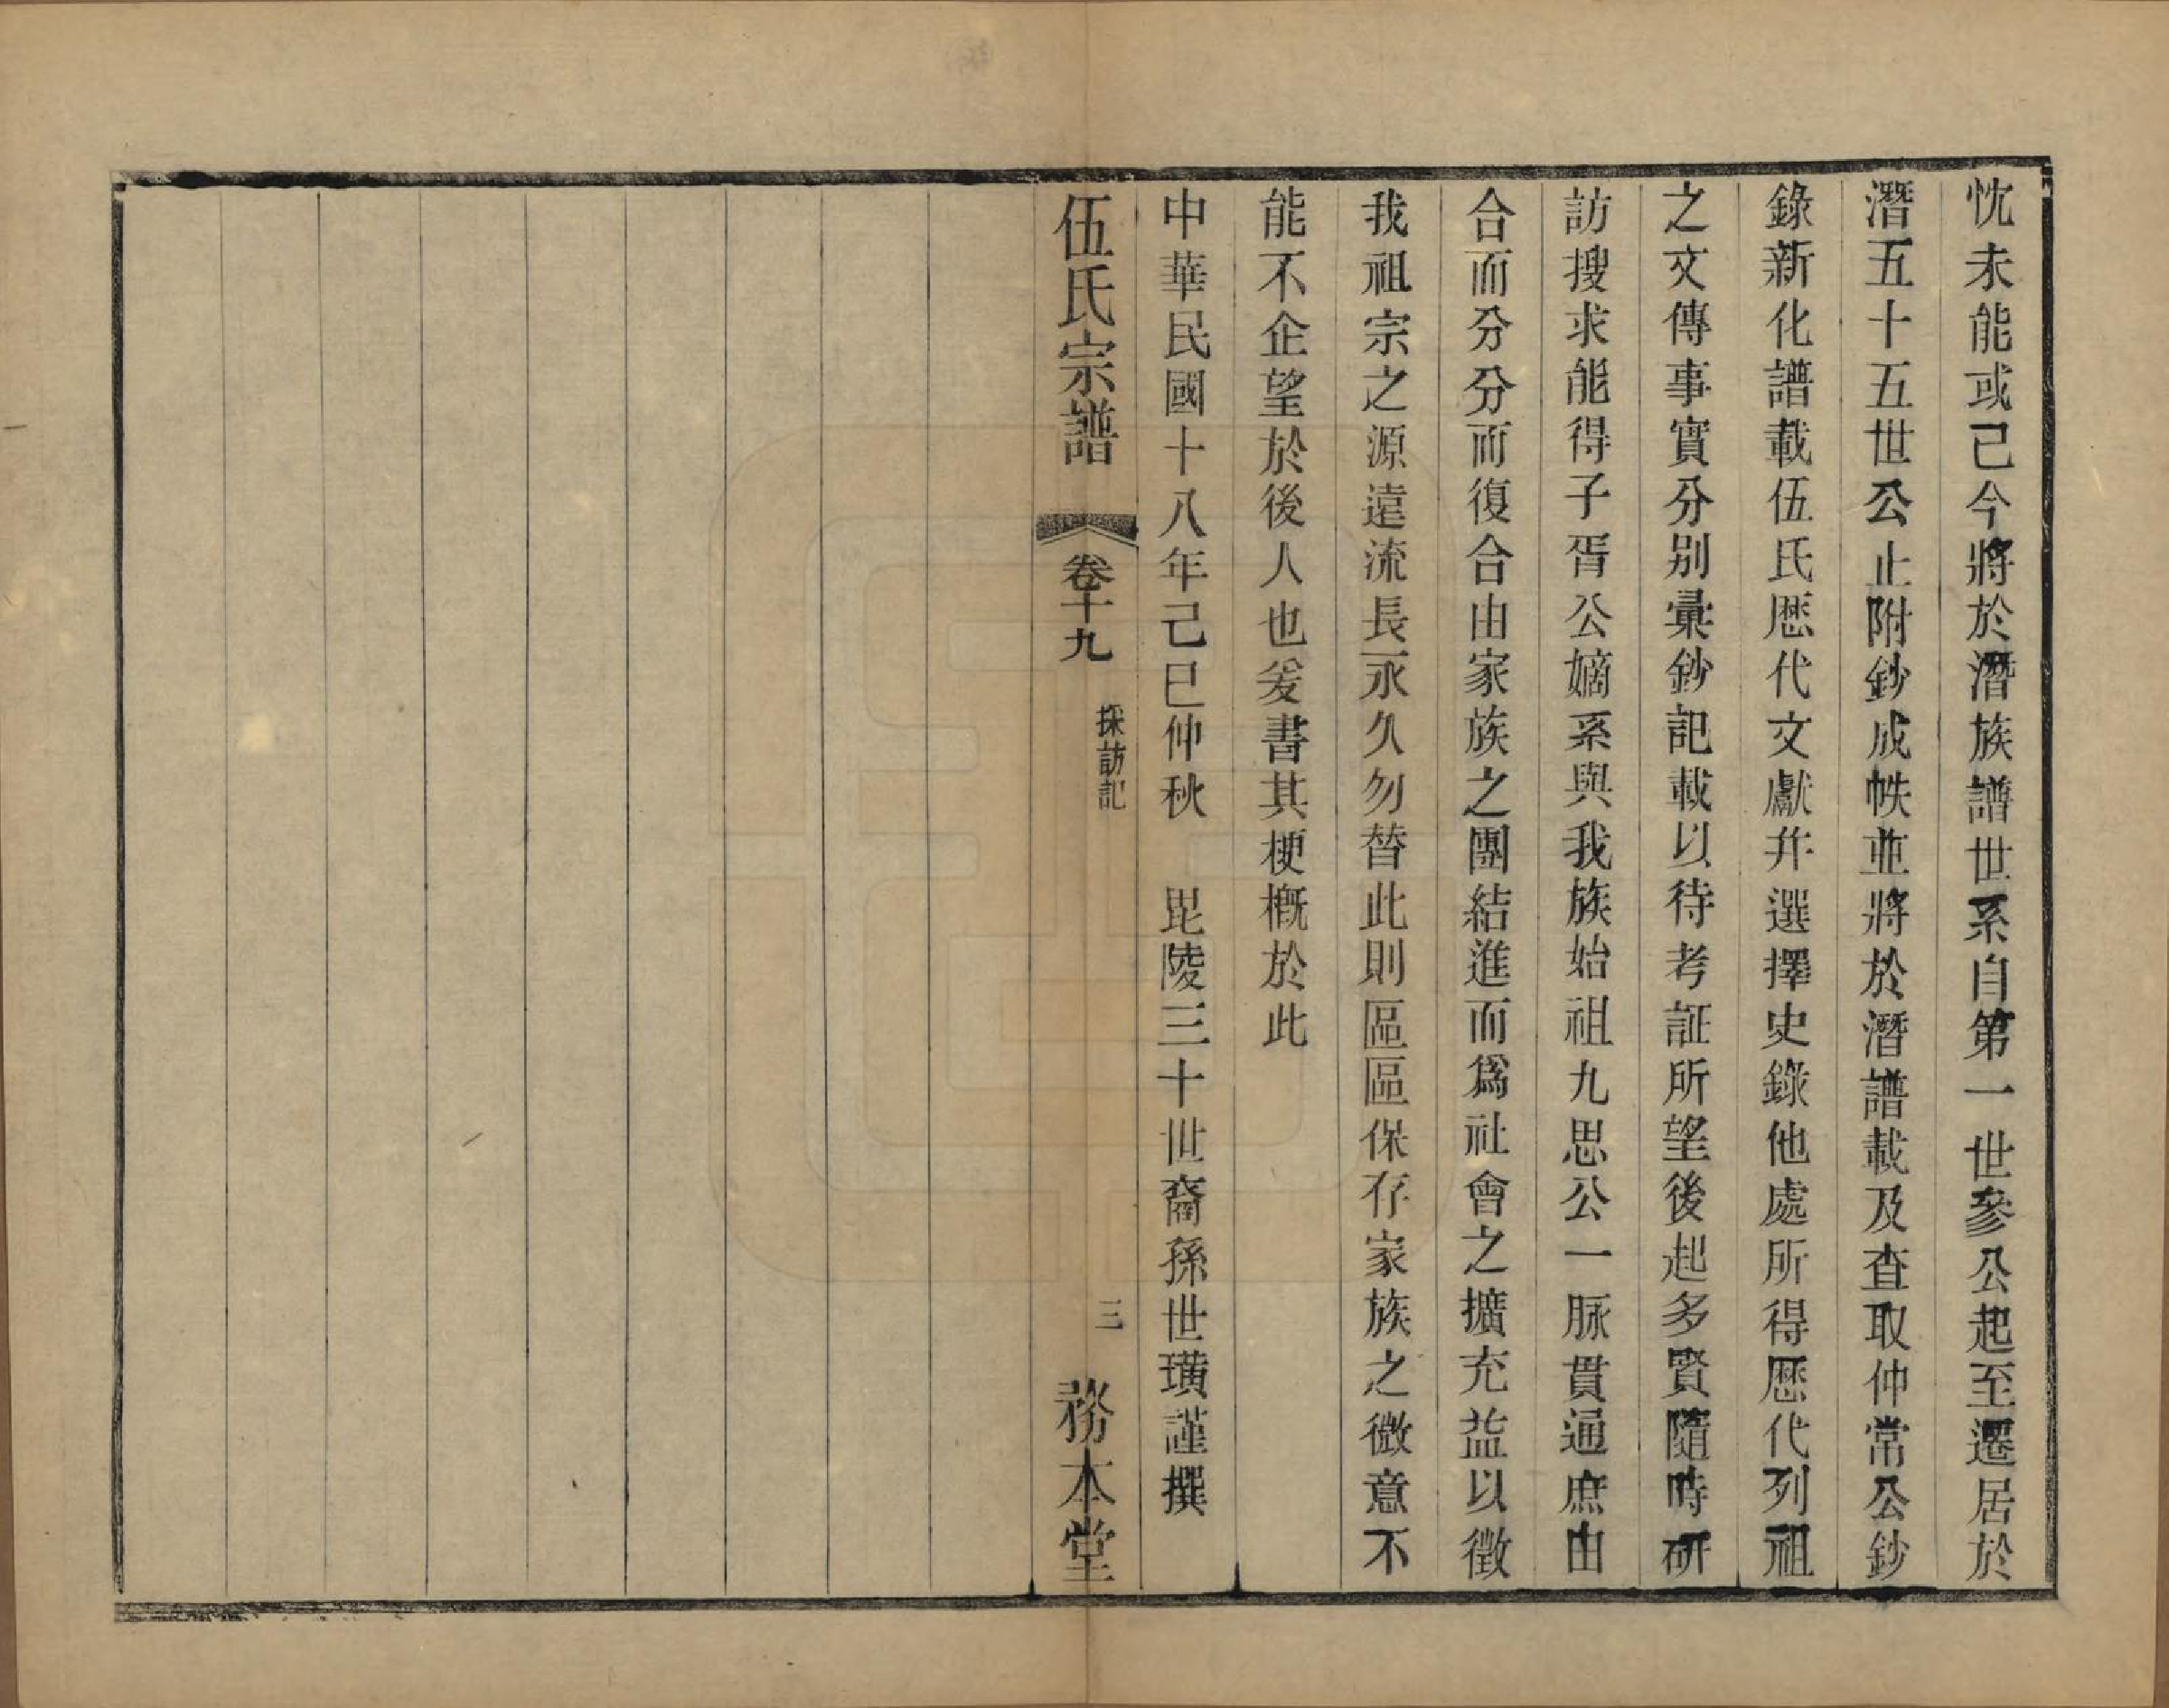 忱未能或己今將於潛族譜世系自第一世參公起至遷居於
潛五十五世公止附鈔成帙並將於潛譜載及查取仲常公鈔
錄新化譜載伍氏歷代文獻幷選擇史錄他處所得歷代列祖
之文傳事實分别彙鈔記載以待考証所望後起多賢隨時研
訪搜求能得子胥公嫡系與我族始祖九思公一脈貫通庶由
合而分分而復合由家族之團結進而爲社會之擴充益以徵
我祖宗之源遠流長永久勿替此則區區保存家族之微意不
能不企望於後人也爰書其梗槪於此
中華民國十八年己巳仲秋 毘陵三十世裔孫世璜謹撰
伍氏宗譜 卷十九 採訪記 三 務本堂